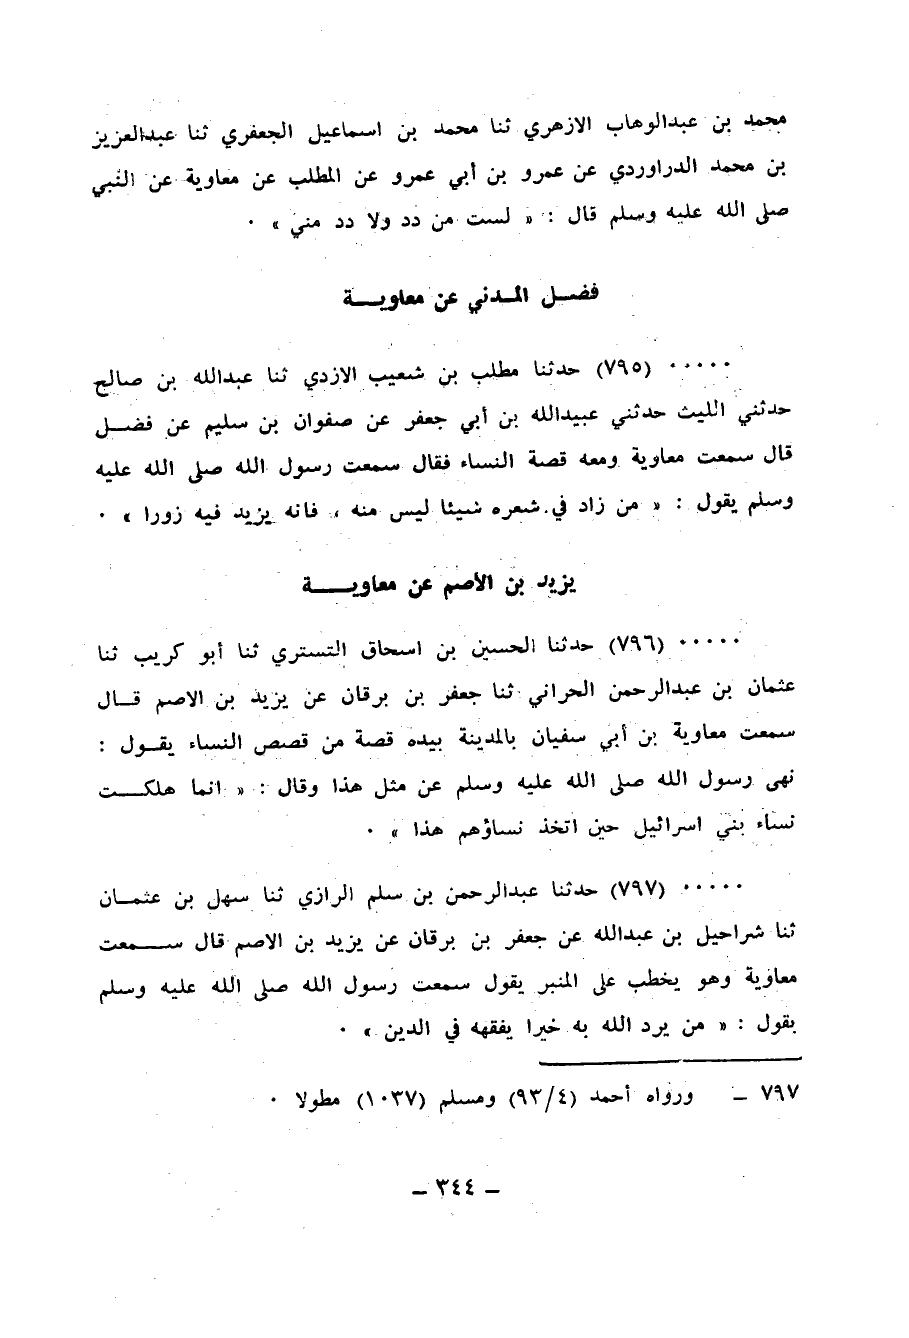 محمد بن عبدالوهاب الازهري ثنا محمد بن اسماعيل الجعفري ثنا عبدالعزيز
بن محمد الدراوردي عن عمرو بن أبي عمرو عن المطلب عن معاوية عن النبي
صلى الله عليه وسلم قال : « لست من دد ولا دد مني » ٠
فضــل المـدني عن معاويـــة
٠٠٠٠٠ (٧٩٥) حدثنا مطلب بن شعيب الازدي ثنا عبدالله بن صالح
حدثني الليث حدثني عبيدالله بن أبي جعفر عن صفوان بن سليم عن فضــل
قال سمعت معاوية ومعه قصة النساء فقال سمعت رسول الله صلى الله عليه
وسلم يقول : « من زاد في شعره شيئا ليس منه ، فانه يزيد فيه زورا » ٠
يزيد بن الأصم عن معاويـــــة
٠٠٠٠٠ (٧٩٦) حدثنا الحسين بن اسحاق التستري ثنا أبو كريب ثنا
عثمان بن عبدالرحمن الحراني ثنا جعفر بن برقان عن يزيد بن الاصم قــال
سمعت معاوية بن أبي سفيان بالمدينة بيده قصة من قصص النساء يقــول :
نهى رسول الله صلى الله عليه وسلم عن مثل هذا وقال : « انما هلكــــت
نساء بني اسرائيل حين اتخذ نساؤهم هذا » ٠
٠٠٠٠٠ (٧٩٧) حدثنا عبدالرحمن بن سلم الرازي ثنا سهل بن عثمــان
ثنا شراحيل بن عبدالله عن جعفر بن برقان عن يزيد بن الاصم قال ســـمعت
معاوية وهو يخطب على المنبر يقول سمعت رسول الله صلى الله عليه وسلم
يقول : « من يرد الله به خيرا يفقهه في الدين » ٠
٧٩٧ ــ ورواه أحمد (٩٣/٤) ومسلم (١٠٣٧) مطولا ٠
ــ ٣٤٤ ــ